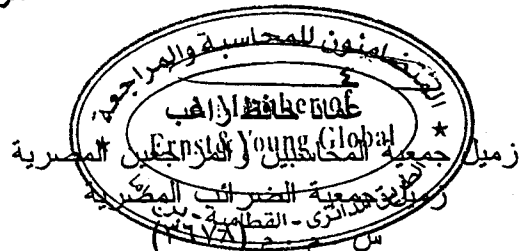 المتضامنون للمحاسبة والمراجعة
عماد حافظ راغب
A Member of
Ernst & Young Global
زميل جمعية المحاسبين والمراجعين المصرية
زميل جمعية الضرائب المصرية
الطريق الدائرى - القطامية -
س . م . م (٣٦٧٨)